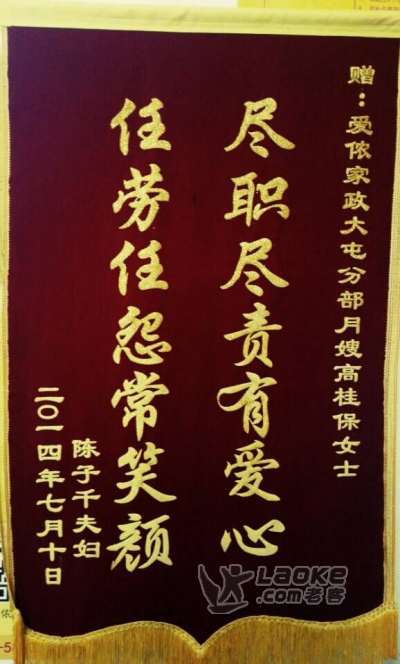 赠：爱侬家政大屯分部月嫂高桂保女士
尽职尽责有爱心
任劳任怨常笑颜
陈子千夫妇
二〇一四年七月十日
LAOKE
.com老客